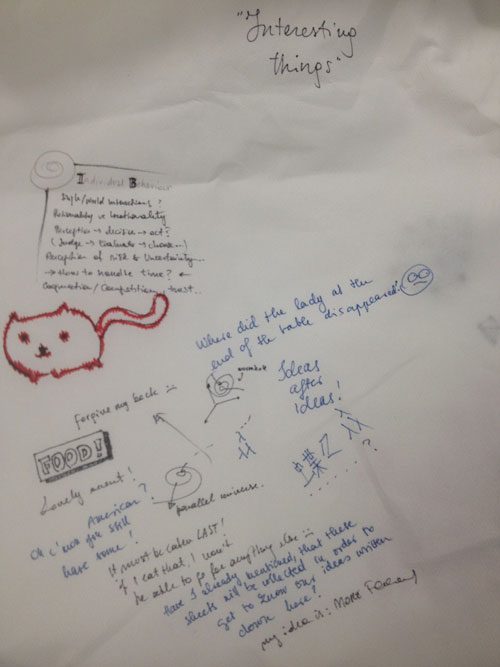 "Interesting
things"
Individual Behaviour
Rationality vs irrationality
Perception → decision → act?
(Judge → Evaluate → choose)
Perception of risk & Uncertainty...
→ How to handle time? ←
Cooperation / Competition, trust...
Where did the lady at the
end of the table disappeared?
another
Ideas
after
ideas!
Forgive my back
FOOD!
Lonely
American?
parallel universe.
?
still
have some!
It must be taken LAST!
if I eat that, I won't
be able to go for anything else
Have I already mentioned, that these
sheets will be collected in order to
get to know our ideas written
down here?
my idea is: MORE